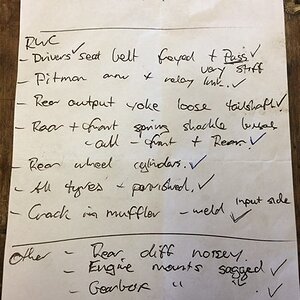 RWC
- Drivers✓ seat belt frayed + Pass✓
very stiff
- Pitman arm + relay link.✓
- Rear output yoke loose tailshaft✓
- Rear + front spring shackle bushes
- all - front + Rear.✓
- Rear wheel cylinders.✓
- All tyres - perished.✓
- Crack in muffler - weld ✓ input side
Other - Rear diff noisey.
- Engine mounts sagged ✓
- Gearbox " " ✓